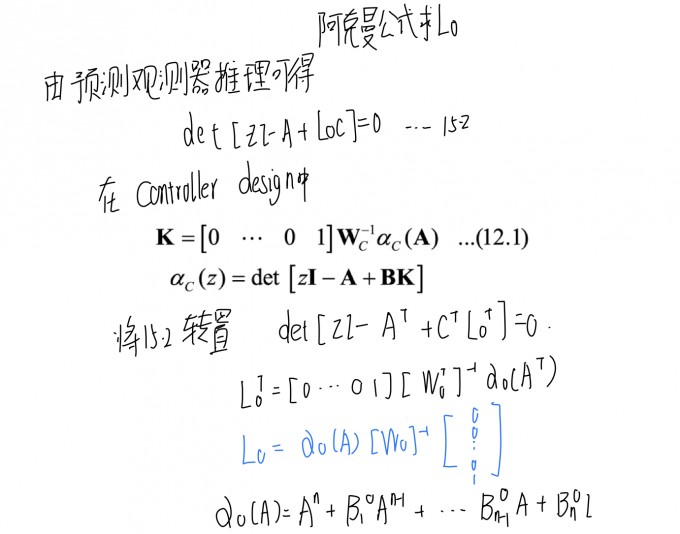 阿克曼公式求L₀
由预测观测器推理可得
det[zI-A+L₀C]=0 ... 15.2
在 Controller design中
K = [0 ⋯ 0 1] W_C^{-1} α_C(A) ...(12.1)
α_C(z) = det [zI − A + BK]
将15.2 转置 det[zI- A^T + C^T L₀^T]=0.
L₀^T = [0 ⋯ 0 1][W₀^T]^{-1} α₀(A^T)
L₀ = α₀(A)[W₀]^{-1} [0 0 ⋮ 0 1]
α₀(A) = A^n + B₁^0 A^{n-1} + ⋯ B_{n-1}^0 A + B_n^0 I